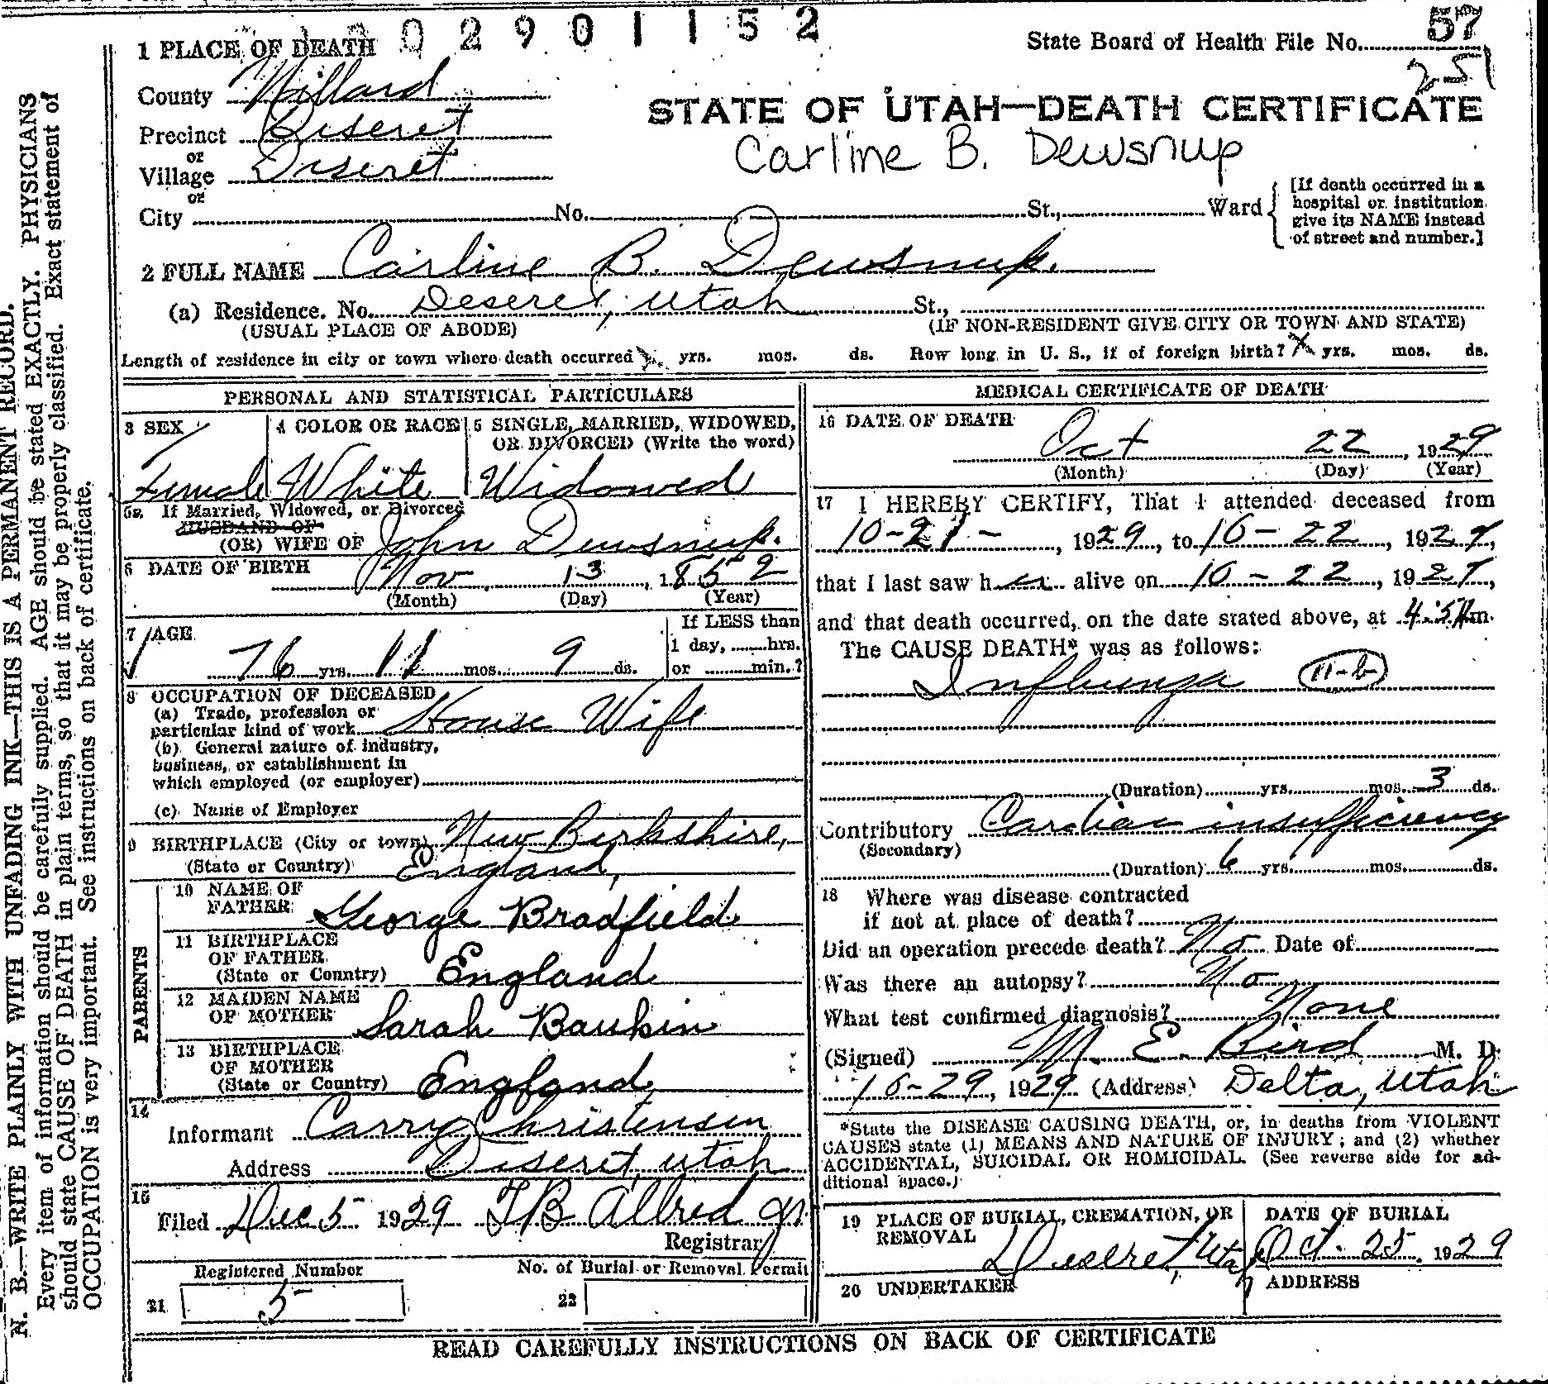 02901152
State Board of Health File No. 57
251
1 PLACE OF DEATH
County Millard
Precinct Deseret
or
Village Deseret
or
City No. St., Ward
STATE OF UTAH—DEATH CERTIFICATE
Carline B. Dewsnup
[If death occurred in a
hospital or institution
give its NAME instead
of street and number.]
2 FULL NAME Carline B. Dewsnup.
(a) Residence. No. Deseret, Utah St.,
(USUAL PLACE OF ABODE) (IF NON-RESIDENT GIVE CITY OR TOWN AND STATE)
Length of residence in city or town where death occurred yrs. mos. ds. How long in U. S., if of foreign birth? X yrs. mos. ds.
PERSONAL AND STATISTICAL PARTICULARS
3 SEX 4 COLOR OR RACE 5 SINGLE, MARRIED, WIDOWED,
OR DIVORCED (Write the word)
Female White Widowed
5a If Married, Widowed, or Divorced
HUSBAND OF
(OR) WIFE OF John Dewsnup.
6 DATE OF BIRTH Nov 13, 1852
(Month) (Day) (Year)
7 AGE If LESS than
1 day, hrs.
76 yrs. 11 mos. 9 ds. or min.?
8 OCCUPATION OF DECEASED
(a) Trade, profession or
particular kind of work House Wife
(b) General nature of industry,
business, or establishment in
which employed (or employer)
(c) Name of Employer
9 BIRTHPLACE (City or town) New Berkshire,
(State or Country) England,
PARENTS
10 NAME OF
FATHER George Bradfield
11 BIRTHPLACE
OF FATHER
(State or Country) England
12 MAIDEN NAME
OF MOTHER Sarah
13 BIRTHPLACE
OF MOTHER
(State or Country) England
14
Informant Carry Christensen
Address Deseret, Utah
15
Filed Dec 5 1929 T B Allred Jr
Registrar
Registered Number No. of Burial or Removal Permit
21 5 22
MEDICAL CERTIFICATE OF DEATH
16 DATE OF DEATH
Oct 22, 1929
(Month) (Day) (Year)
17 I HEREBY CERTIFY, That I attended deceased from
10-21-, 1929, to 10-22, 1929,
that I last saw her alive on 10-22, 1929,
and that death occurred, on the date stated above, at m.
The CAUSE DEATH* was as follows:
Influenza 11-b
(Duration) yrs. mos. 3 ds.
Contributory Cardiac insufficiency
(Secondary)
(Duration) 6 yrs. mos. ds.
18 Where was disease contracted
if not at place of death?
Did an operation precede death? No Date of
Was there an autopsy? No
What test confirmed diagnosis? None
(Signed) M. E. Bird M. D.
10-29, 1929 (Address) Delta, Utah
*State the DISEASE CAUSING DEATH, or, in deaths from VIOLENT
CAUSES state (1) MEANS AND NATURE OF INJURY; and (2) whether
ACCIDENTAL, SUICIDAL OR HOMICIDAL. (See reverse side for ad-
ditional space.)
19 PLACE OF BURIAL, CREMATION, OR
REMOVAL
Deseret, Utah
DATE OF BURIAL
Oct. 25, 1929
20 UNDERTAKER ADDRESS
READ CAREFULLY INSTRUCTIONS ON BACK OF CERTIFICATE
N. B.—WRITE PLAINLY WITH UNFADING INK—THIS IS A PERMANENT RECORD.
Every item of information should be carefully supplied. AGE should be stated EXACTLY. PHYSICIANS
should state CAUSE OF DEATH in plain terms, so that it may be properly classified. Exact statement of
OCCUPATION is very important. See instructions on back of certificate.